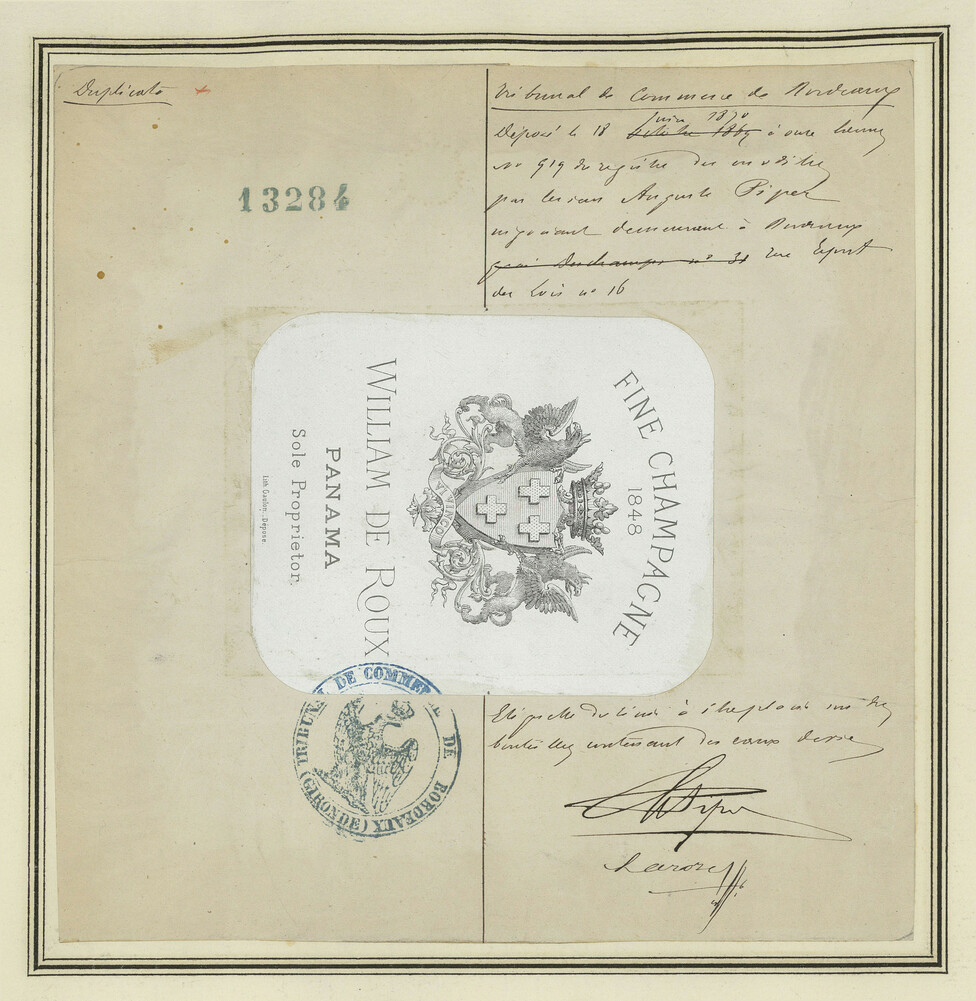 Duplicata
13284
Tribunal de Commerce de Bordeaux
Juin 1870
Déposé le 18 octobre 1869 à onze heures
No 919 du registre des
par le sieur Auguste Piper
négociant demeurant à Bordeaux
quai Deschamps no 31 rue Esprit
des Lois no 16
FINE CHAMPAGNE
1848
WILLIAM DE ROUX
PANAMA
Sole Proprietor
TRIBUNAL DE COMMERCE DE BORDEAUX (GIRONDE)
Etiquette destinée à être placée sur des
bouteilles contenant des eaux de vie
Piper